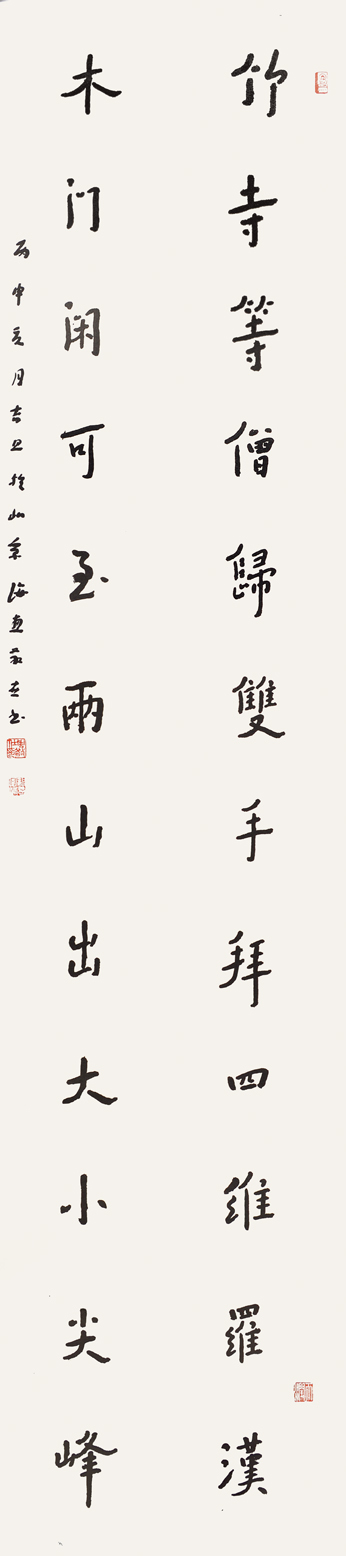 竹寺等僧歸雙手拜四維羅漢
木门闲可至兩山出大小尖峰
丙申亥月吉旦於北京